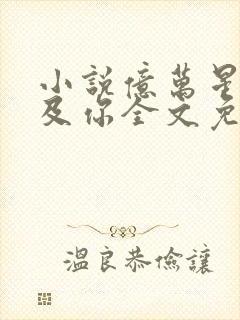 小說億萬星
及你全文免
溫良恭儉讓